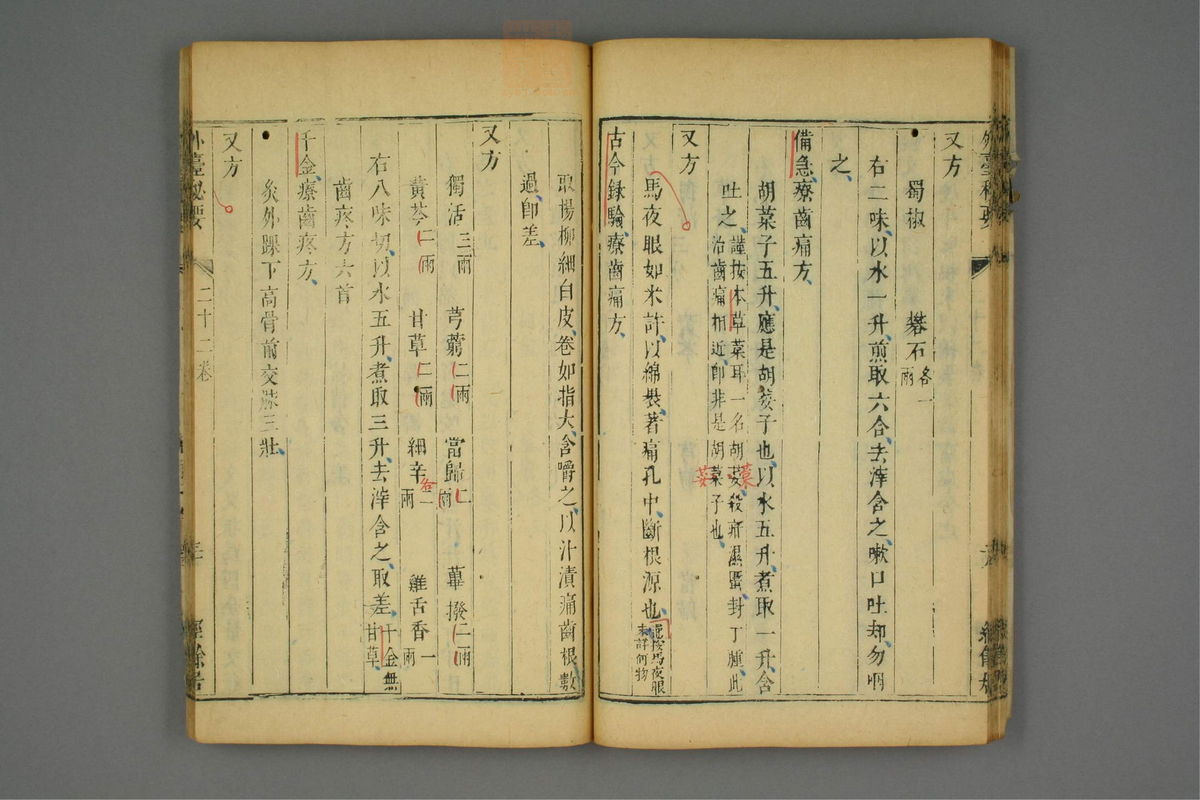 外臺秘要
又方
蜀椒 礬石各一兩
右二味以水一升煎取六合去滓含之嗽口吐却勿咽
之
備急療齒痛方
胡菜子五升應是胡荽子也以水五升煮取一升含
吐之謹按本草菜耳一名胡荽殺疥濕䘌封丁腫此
治齒痛相近即非是胡菓子也
菜
荽
又方
馬夜眼如米許以綿裹著痛孔中斷根源也
謹按馬夜眼
未詳何物
古今録驗療齒痛方
取楊柳細白皮卷如指大含嚼之以汁漬痛齒根數
過即差
又方
獨活三兩 芎藭二兩 當歸二兩 蓽撥二兩
黄芩二兩 甘草二兩 細辛各一兩 雞舌香一兩
右八味切以水五升煮取三升去滓含之取差千金無
甘草
齒疼方六首
千金療齒疼方
灸外踝下高骨前交脉三壯
又方
外臺秘要 二十二卷 經餘居